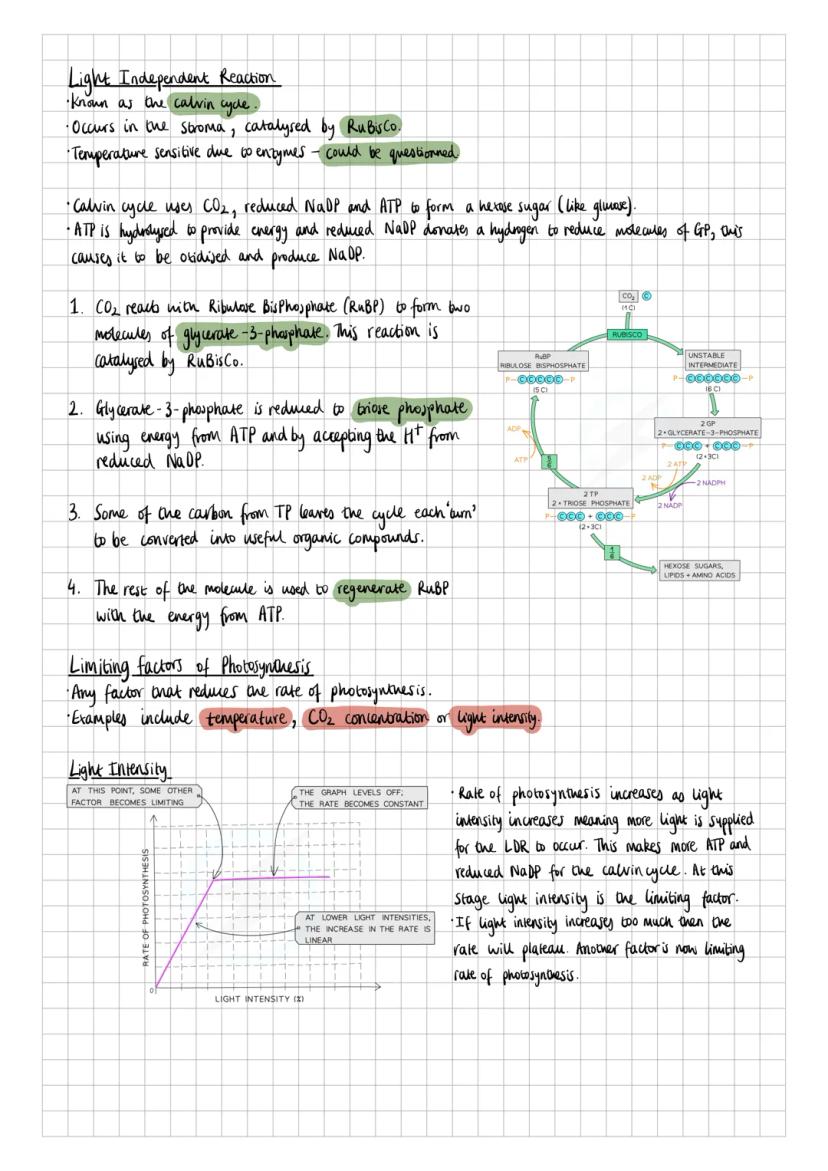 Light Independent Reaction
·Known as the calvin cycle.
·Occurs in the stroma, catalysed by RuBisCo.
·Temperature sensitive due to enzymes – could be questionned
·Calvin cycle uses CO₂, reduced NaDP and ATP to form a hexose sugar (like glucose).
·ATP is hydrolysed to provide energy and reduced NaDP donates a hydrogen to reduce molecules of GP, this
causes it to be oxidised and produce NaDP.
1. CO₂ reacts with Ribulose BisPhosphate (RuBP) to form two
molecules of glycerate-3-phosphate. This reaction is
catalysed by RuBisCo.
2. Glycerate-3-phosphate is reduced to triose phosphate
using energy from ATP and by accepting the H⁺ from
reduced NaDP.
3. Some of the carbon from TP leaves the cycle each 'turn'
to be converted into useful organic compounds.
4. The rest of the molecule is used to regenerate RuBP
with the energy from ATP.
CO₂ C
(1C)
RUBISCO
RuBP
RIBULOSE BISPHOSPHATE
P–CCCCC–P
(5 C)
UNSTABLE
INTERMEDIATE
P–CCCCCC–P
(6 C)
2 GP
2×GLYCERATE-3-PHOSPHATE
P–CCC + CCC–P
(2×3C)
2 ATP
2 ADP
2 NADPH
2 NADP
2 TP
2×TRIOSE PHOSPHATE
P–CCC + CCC–P
(2×3C)
ADP
ATP
5/6
1/6
HEXOSE SUGARS,
LIPIDS + AMINO ACIDS
Limiting factors of Photosynthesis
·Any factor that reduces the rate of photosynthesis.
·Examples include temperature, CO₂ concentration or light intensity.
Light Intensity
AT THIS POINT, SOME OTHER
FACTOR BECOMES LIMITING
THE GRAPH LEVELS OFF;
THE RATE BECOMES CONSTANT
AT LOWER LIGHT INTENSITIES,
THE INCREASE IN THE RATE IS
LINEAR
RATE OF PHOTOSYNTHESIS
0
LIGHT INTENSITY (%)
·Rate of photosynthesis increases as light
intensity increases meaning more light is supplied
for the LDR to occur. This makes more ATP and
reduced NaDP for the calvin cycle. At this
stage light intensity is the limiting factor.
·If light intensity increases too much then the
rate will plateau. Another factor is now limiting
rate of photosynthesis.